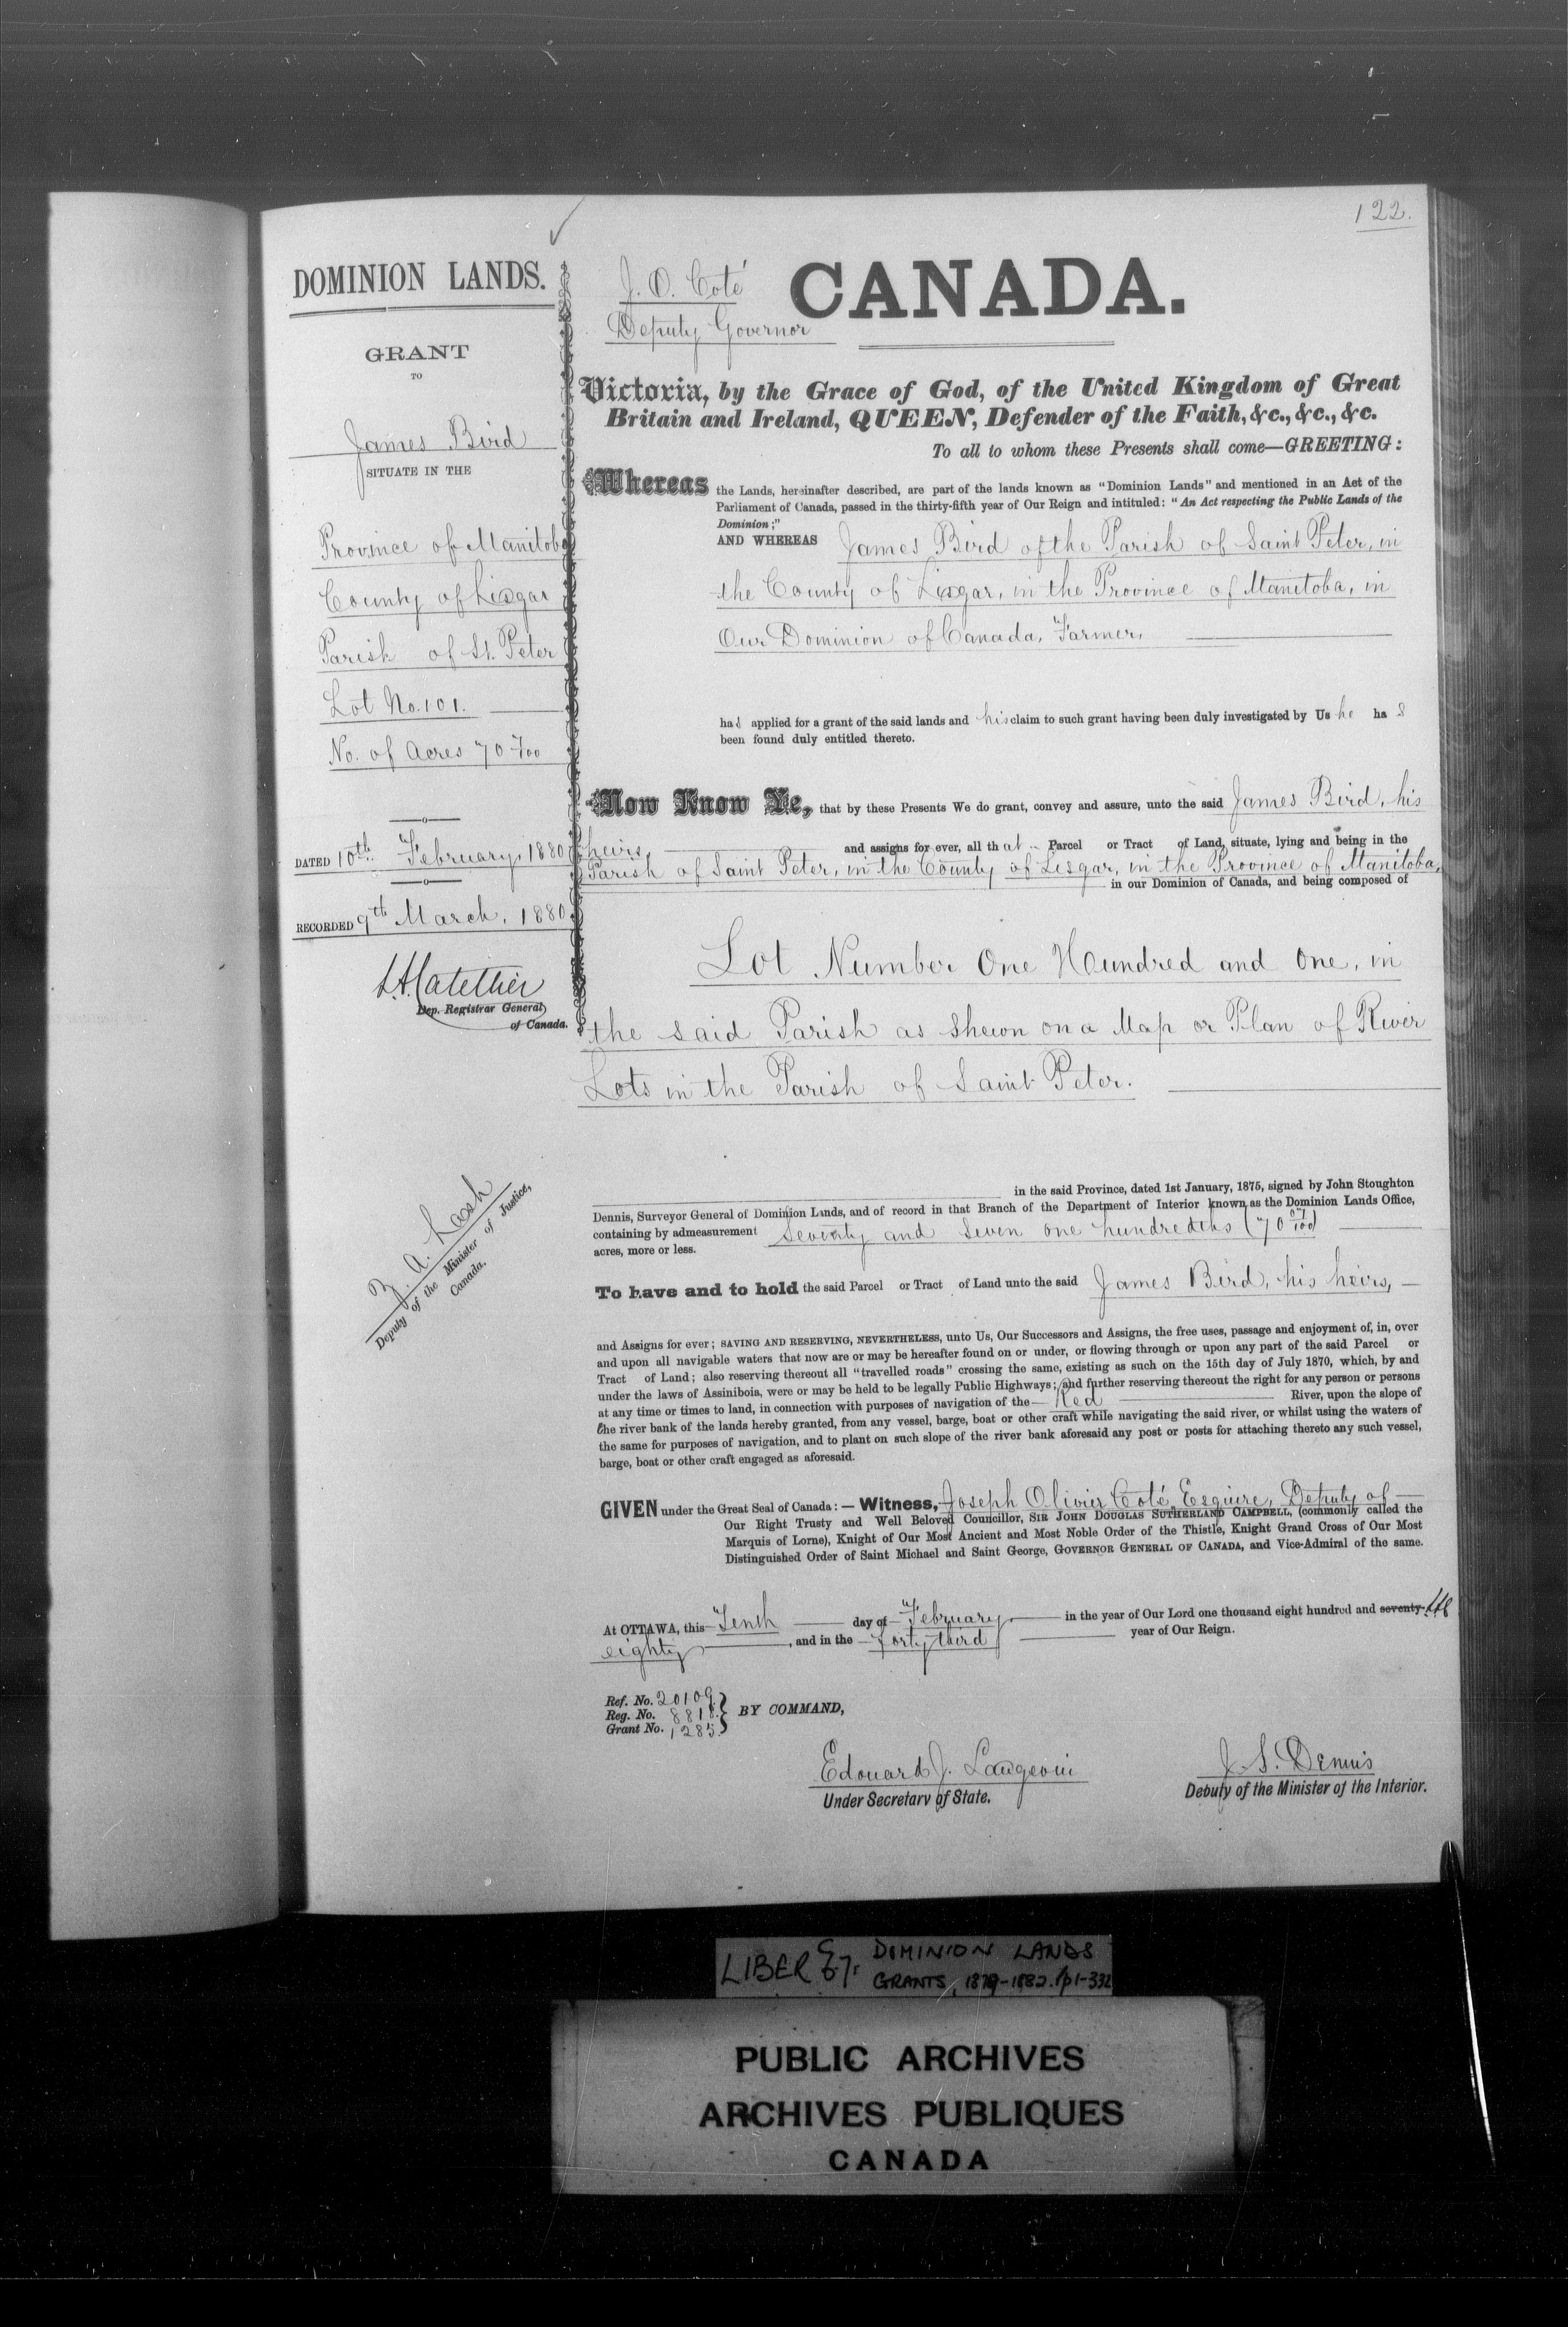 122.
DOMINION LANDS.
GRANT
TO
James Bird
SITUATE IN THE
Province of Manitoba
County of Lisgar
Parish of St. Peter
Lot No. 101.
No. of Acres 70 7/100
DATED 10th February, 1880
RECORDED 9th March, 1880
Dep. Registrar General
of Canada.
Z. A. Lash
Deputy of the Minister of Justice,
Canada.
J. O. Coté
Deputy Governor
CANADA.
Victoria, by the Grace of God, of the United Kingdom of Great
Britain and Ireland, QUEEN, Defender of the Faith, &c., &c., &c.
To all to whom these Presents shall come—GREETING:
Whereas the Lands, hereinafter described, are part of the lands known as "Dominion Lands" and mentioned in an Act of the
Parliament of Canada, passed in the thirty-fifth year of Our Reign and intituled: "An Act respecting the Public Lands of the
Dominion;"
AND WHEREAS James Bird of the Parish of Saint Peter, in
the County of Lisgar, in the Province of Manitoba, in
Our Dominion of Canada, Farmer,
has applied for a grant of the said lands and his claim to such grant having been duly investigated by Us he has
been found duly entitled thereto.
Now Know Ye, that by these Presents We do grant, convey and assure, unto the said James Bird, his
heirs, and assigns for ever, all that Parcel or Tract of Land, situate, lying and being in the
Parish of Saint Peter, in the County of Lisgar, in the Province of Manitoba,
in our Dominion of Canada, and being composed of
Lot Number One Hundred and One, in
the said Parish as shewn on a Map or Plan of River
Lots in the Parish of Saint Peter.
in the said Province, dated 1st January, 1875, signed by John Stoughton
Dennis, Surveyor General of Dominion Lands, and of record in that Branch of the Department of Interior known as the Dominion Lands Office,
containing by admeasurement Seventy and Seven one hundredths (70 07/100)
acres, more or less.
To have and to hold the said Parcel or Tract of Land unto the said James Bird, his heirs,
and Assigns for ever; SAVING AND RESERVING, NEVERTHELESS, unto Us, Our Successors and Assigns, the free uses, passage and enjoyment of, in, over
and upon all navigable waters that now are or may be hereafter found on or under, or flowing through or upon any part of the said Parcel or
Tract of Land; also reserving thereout all "travelled roads" crossing the same, existing as such on the 15th day of July 1870, which, by and
under the laws of Assiniboia, were or may be held to be legally Public Highways; and further reserving thereout the right for any person or persons
at any time or times to land, in connection with purposes of navigation of the Red River, upon the slope of
the river bank of the lands hereby granted, from any vessel, barge, boat or other craft while navigating the said river, or whilst using the waters of
the same for purposes of navigation, and to plant on such slope of the river bank aforesaid any post or posts for attaching thereto any such vessel,
barge, boat or other craft engaged as aforesaid.
GIVEN under the Great Seal of Canada: — Witness, Joseph Olivier Coté, Esquire, Deputy of
Our Right Trusty and Well Beloved Councillor, SIR JOHN DOUGLAS SUTHERLAND CAMPBELL, (commonly called the
Marquis of Lorne), Knight of Our Most Ancient and Most Noble Order of the Thistle, Knight Grand Cross of Our Most
Distinguished Order of Saint Michael and Saint George, GOVERNOR GENERAL OF CANADA, and Vice-Admiral of the same.
At OTTAWA, this Tenth day of February in the year of Our Lord one thousand eight hundred and seventy-
eighty, and in the forty third year of Our Reign.
Ref. No. 20109.
Reg. No. 8818.
Grant No. 1285.
BY COMMAND,
Edouard J. Langevin
Under Secretary of State.
J. S. Dennis
Deputy of the Minister of the Interior.
LIBER DOMINION LANDS
GRANTS, 1879-1882. pp1-332
PUBLIC ARCHIVES
ARCHIVES PUBLIQUES
CANADA